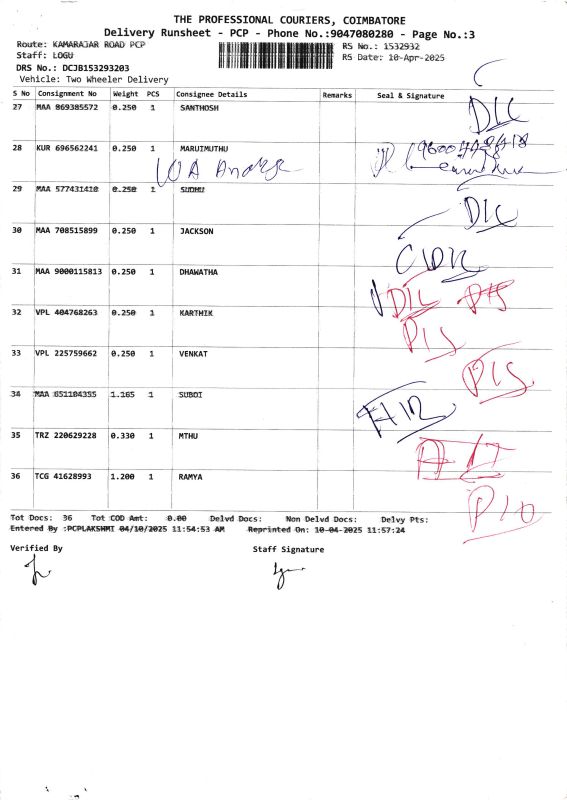 THE PROFESSIONAL COURIERS, COIMBATORE
Delivery Runsheet - PCP - Phone No.:9047080280 - Page No.:3
Route: KAMARAJAR ROAD PCP
Staff: LOGU
DRS No.: DCJB153293203
Vehicle: Two Wheeler Delivery
RS No.: 1532932
RS Date: 10-Apr-2025
S No Consignment No Weight PCS Consignee Details Remarks Seal & Signature
27 MAA 869385572 0.250 1 SANTHOSH
28 KUR 696562241 0.250 1 MARUIMUTHU
29 MAA 577431410 0.250 1 SUDHU
30 MAA 708515899 0.250 1 JACKSON
31 MAA 9000115813 0.250 1 DHAWATHA
32 VPL 404768263 0.250 1 KARTHIK
33 VPL 225759662 0.250 1 VENKAT
34 MAA 651104355 1.165 1 SUBOI
35 TRZ 220629228 0.330 1 MTHU
36 TCG 41628993 1.200 1 RAMYA
Tot Docs: 36 Tot COD Amt: 0.00 Delvd Docs: Non Delvd Docs: Delvy Pts:
Entered By :PCPLAKSHMI 04/10/2025 11:54:53 AM Reprinted On: 10-04-2025 11:57:24
Verified By Staff Signature